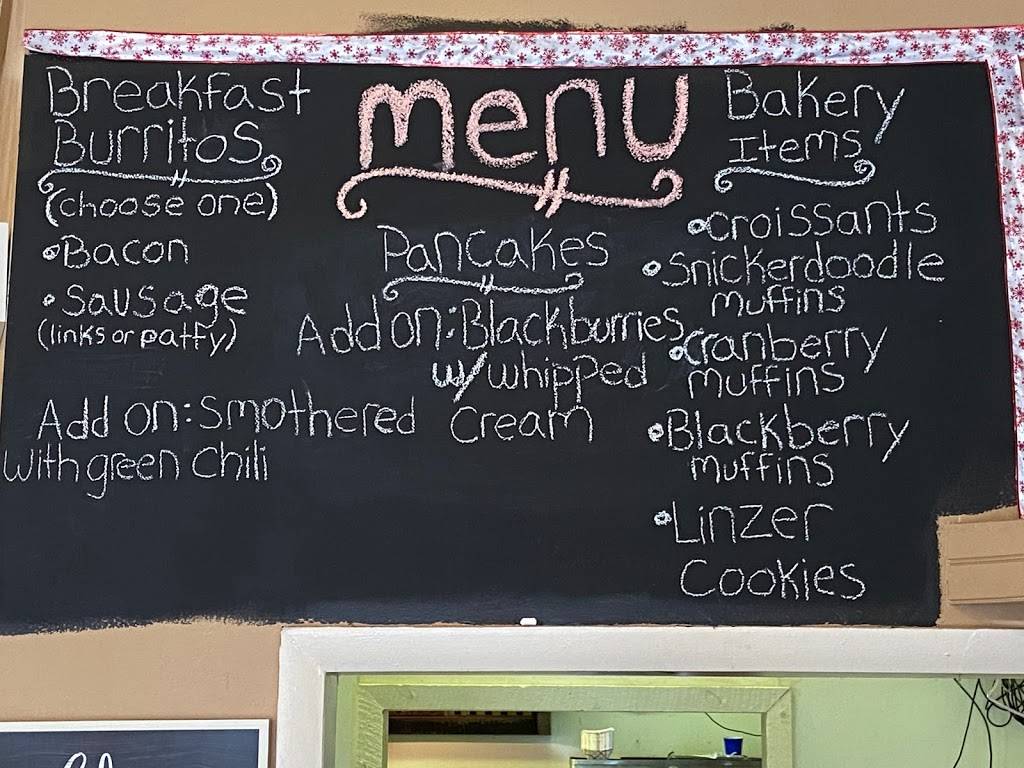 menu
Breakfast
Burritos
(choose one)
•Bacon
•Sausage
(links or patty)
Add on: Smothered
with green chili
Pancakes
Add on: Blackburries
w/ whipped
cream
Bakery
Items
•croissants
•Snickerdoodle
muffins
•cranberry
muffins
•Blackberry
muffins
•Linzer
Cookies